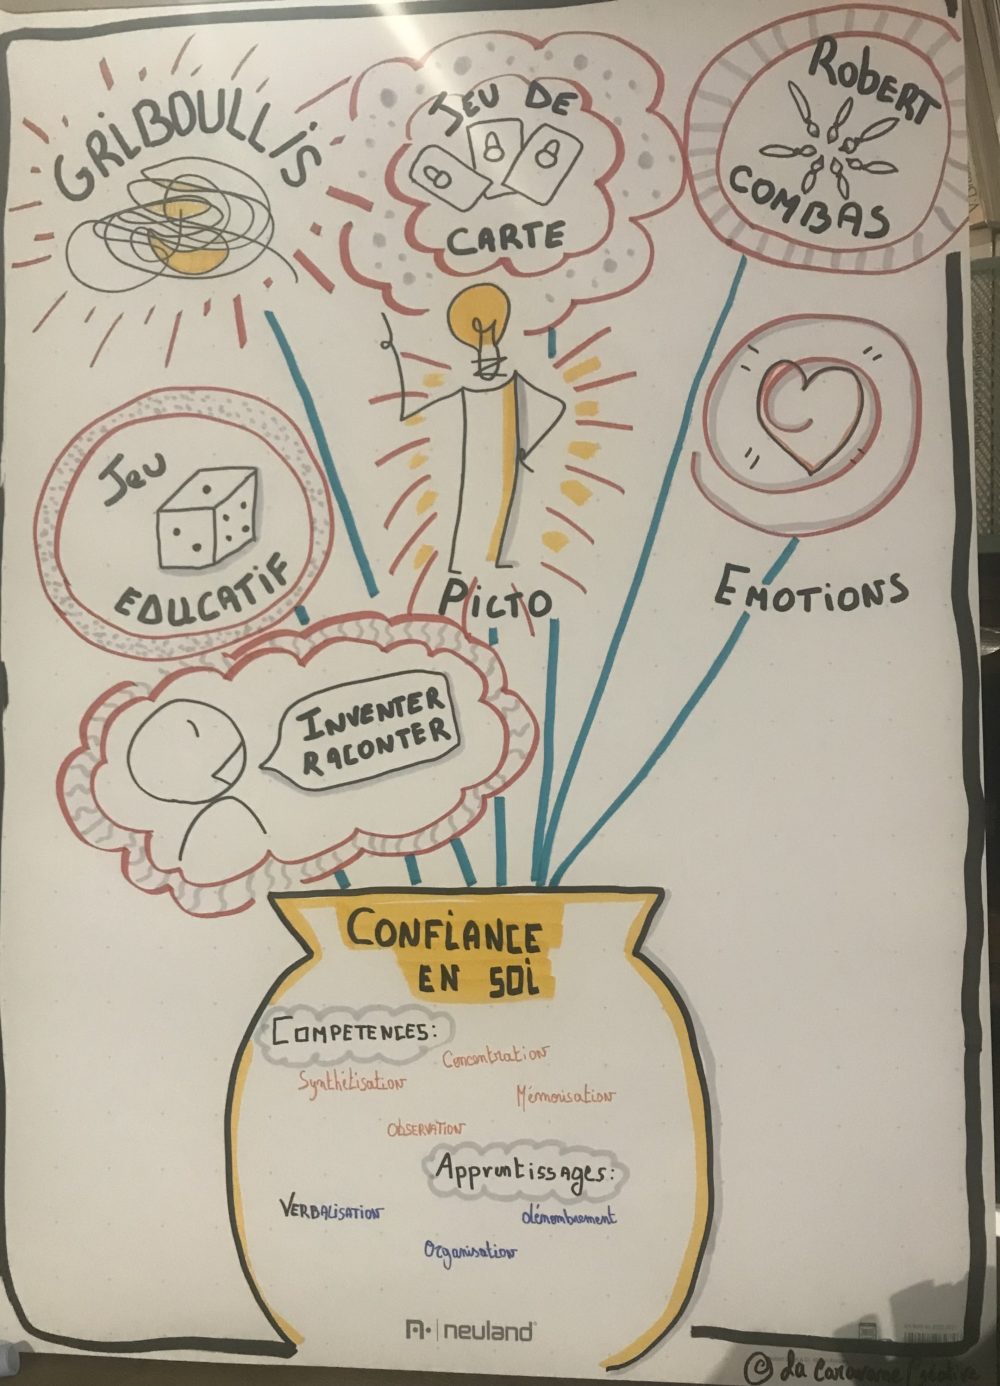 GRIBOULLIS
JEU DE
CARTE
ROBERT
COMBAS
JEU
EDUCATIF
PICTO
EMOTIONS
INVENTER
RACONTER
CONFIANCE
EN SOI
COMPETENCES:
Concentration
Synthétisation
Mémorisation
OBSERVATION
Apprentissages:
VERBALISATION
dénombrement
Organisation
neuland
© La Caravane